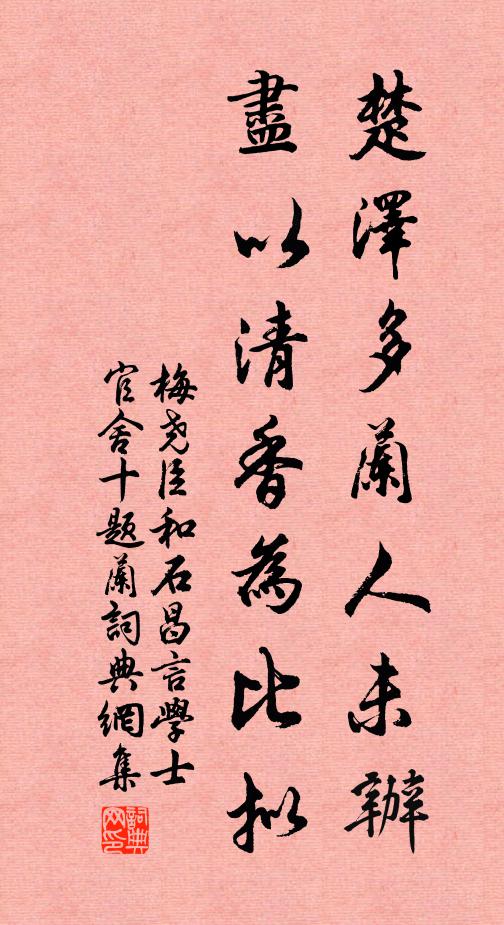 楚澤多蘭人未辦
盡以清香為比拟
梅堯臣和石昌言學士
官舍十題蘭詞典網集
詞典网印